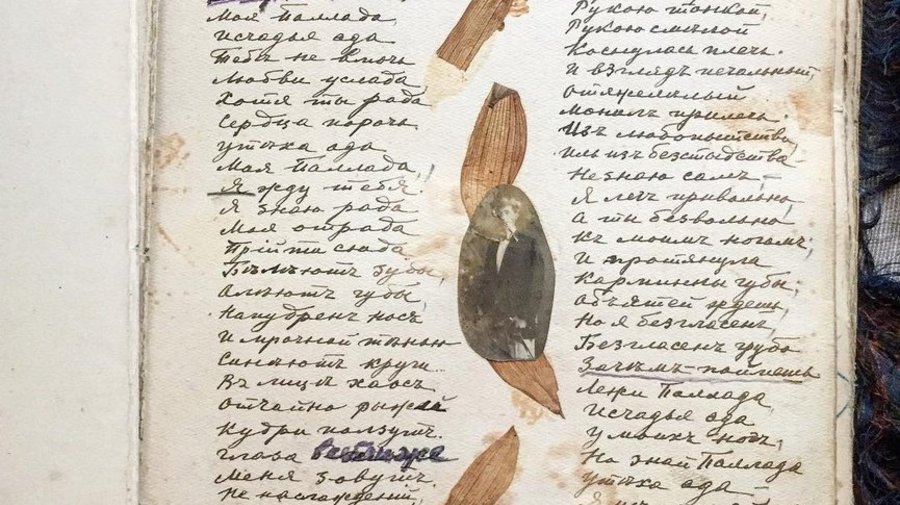 Моя Паллада
Исчадье ада
Тебѣ не
Любви услада
Хотя ты рада
Сердца порочь.
Утѣха ада
Моя Паллада,
Я жду тебя.
Я знаю рада
Моя отрада
Прійти сюда
Бѣлѣютъ зубы,
Алѣютъ губы,
Напудренъ носъ
И мрачной тѣнью
Синѣютъ круги
Въ лицѣ хаосъ
Отчайно рыжей
Кудри ползутъ.
Глаза вампира
Меня зовутъ.
Не наслажденій,
Рукою тонкой,
Рукою смѣлой
Коснулась плечъ.
И взглядъ печальный,
Отяжелѣлый
Молилъ прилечь.
Изъ любопытства,
Иль изъ безстыдства –
Не знаю самъ, –
Я легъ привольно,
А ты безвольно
Къ моимъ ногамъ;
И протянула
Карминны губы,
Объятій ждешь,
Но я безгласенъ,
Безгласенъ грубо
Зачѣмъ – поймешь
Лежи Паллада,
Исчадье ада
У моихъ ногъ,
Но знай Паллада
Утѣха ада –